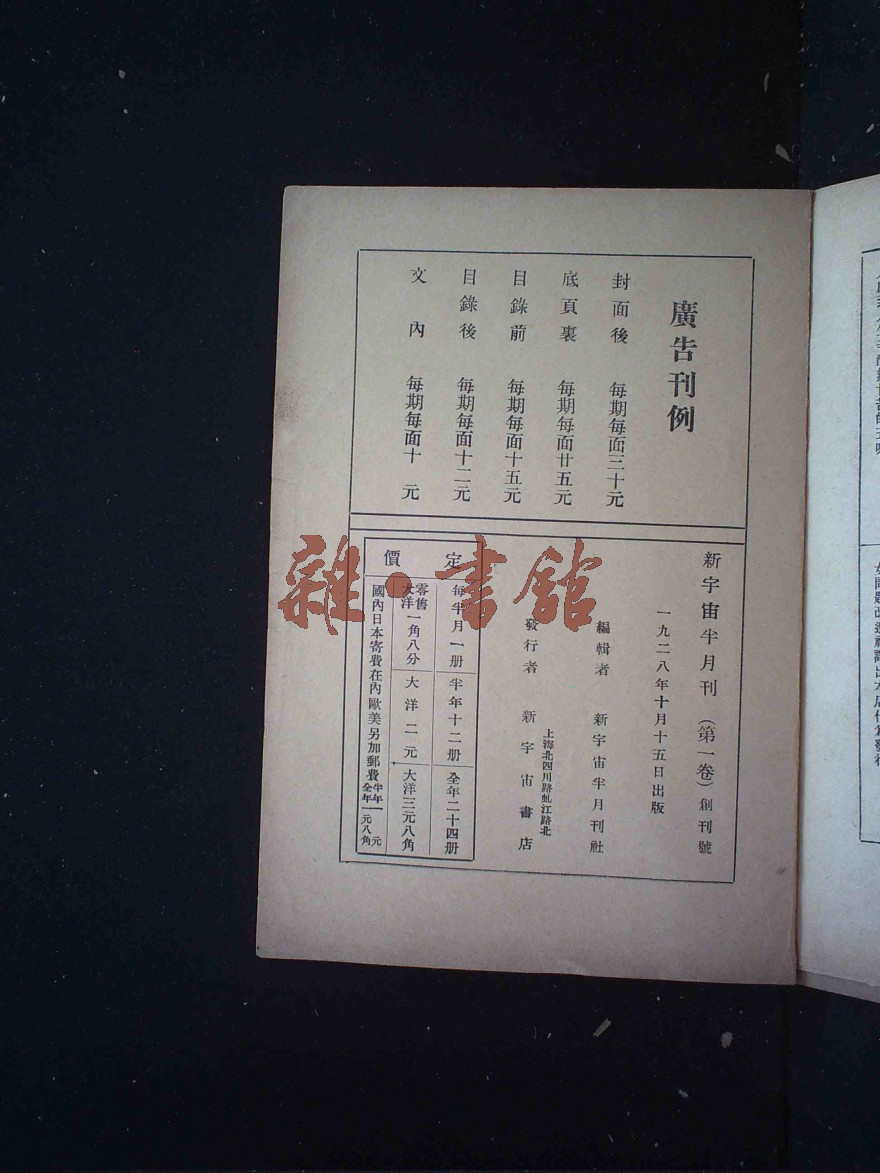 廣告刊例
封面後 每期每面三十元
底頁裏 每期每面廿五元
目錄前 每期每面十五元
目錄後 每期每面十二元
文內 每期每面十元
新宇宙半月刊（第一卷）創刊號
一九二八年十月十五日出版
編輯者 新宇宙半月刊社
上海北四川路虬江路北
發行者 新宇宙書店
定價
每半月一册 半年十二册 全年二十四册
零售大洋一角八分 大洋二元 大洋三元八角
國內日本寄費在內歐美另加郵費半年一元全年一元八角
雜·書館